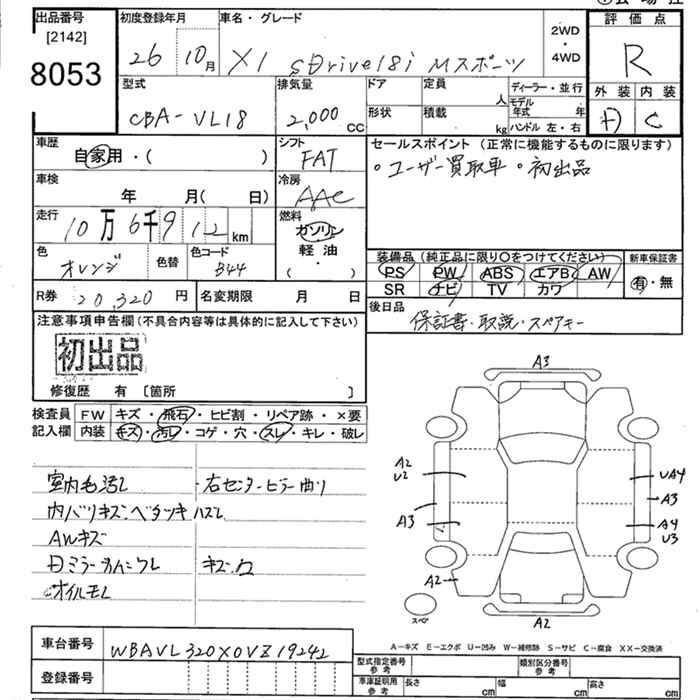 出品番号 初度登録年月 車名・グレード 評価点
[2142]
8053
26 10月 X1 sDrive18i Mスポーツ
2WD
・
4WD
R
型式 排気量 ドア 定員 人 ディーラー・並行
モデル年式 年
CBA-VL18 2,000cc 形状 積載 kg ハンドル 左・右
外装 内装
D C
車歴 自家用・( ) シフト FAT
セールスポイント (正常に機能するものに限ります)
。ユーザー買取車 。初出品
車検 年 月( 日) 冷房 AAC
走行 10万6千912km 燃料 ガソリン
軽油・( )
色 オレンジ 色替 色コード B44
装備品 (純正品に限り○をつけてください) 新車保証書
PS PW ABS エアB AW 有・無
SR ナビ TV カワ
R券 20,320円 名変期限 月 日
後日品 保証書・取説・スペアキー
注意事項申告欄(不具合内容等は具体的に記入して下さい)
初出品
修復歴 有 〔箇所 〕
検査員 FW キズ・飛石・ヒビ割・リペア跡・×要
記入欄 内装 キズ・汚レ・コゲ・穴・スレ・キレ・破レ
室内毛汚レ ・右センターピラー曲り
内ハリキズ・ベタツキ ハズレ
AWキズ
キズ・
オイルモレ
A3
A2
U2
UA4
A3
A3
A4
U3
A2
A2
スペア
車台番号 WBAVL320X0VZ19242
登録番号
A-キズ E-エクボ U-凹み W-補修跡 S-サビ C-腐食 XX-交換済
型式指定番号 参考 類別区分番号 参考
車庫証明用 参考 長さ cm 幅 cm 高さ cm